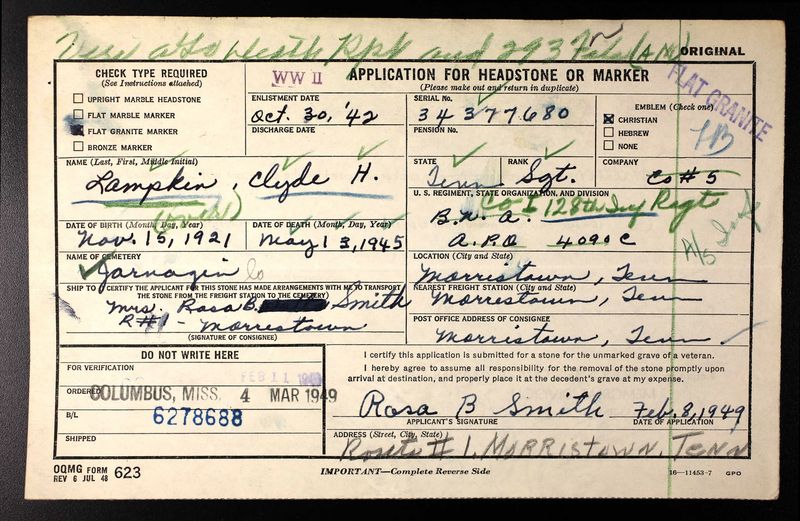 and 293 File
ORIGINAL
CHECK TYPE REQUIRED
(See Instructions attached)
UPRIGHT MARBLE HEADSTONE
FLAT MARBLE MARKER
FLAT GRANITE MARKER
BRONZE MARKER
WW II
APPLICATION FOR HEADSTONE OR MARKER
(Please make out and return in duplicate)
FLAT GRANITE
ENLISTMENT DATE
Oct. 30, '42
DISCHARGE DATE
SERIAL No.
34 377 680
PENSION No.
EMBLEM (Check one)
CHRISTIAN
HEBREW
NONE
NAME (Last, First, Middle Initial)
Lampkin, Clyde H.
STATE
Tenn
RANK
Sgt.
COMPANY
Co #5
U. S. REGIMENT, STATE ORGANIZATION, AND DIVISION
Co I 128th Inf Regt
A.P.O 4090 C
DATE OF BIRTH (Month, Day, Year)
Nov. 15, 1921
DATE OF DEATH (Month, Day, Year)
May 13, 1945
NAME OF CEMETERY
Jarnagin
LOCATION (City and State)
Morristown, Tenn
SHIP TO (I CERTIFY THE APPLICANT FOR THIS STONE HAS MADE ARRANGEMENTS WITH ME TO TRANSPORT THE STONE FROM THE FREIGHT STATION TO THE CEMETERY)
Mrs. Rosa B. Smith
R#1 - Morrestown
(SIGNATURE OF CONSIGNEE)
NEAREST FREIGHT STATION (City and State)
Morrestown, Tenn
POST OFFICE ADDRESS OF CONSIGNEE
Morristown, Tenn.
DO NOT WRITE HERE
FOR VERIFICATION
FEB 11
ORDERED
COLUMBUS, MISS. 4 MAR 1949
B/L
6278688
SHIPPED
I certify this application is submitted for a stone for the unmarked grave of a veteran.
I hereby agree to assume all responsibility for the removal of the stone promptly upon
arrival at destination, and properly place it at the decedent's grave at my expense.
Rosa B Smith Feb. 8, 1949
APPLICANT'S SIGNATURE DATE OF APPLICATION
ADDRESS (Street, City, State)
Route # 1. MORRISTOWN. TENN
OQMG FORM 623
REV 6 JUL 48
IMPORTANT—Complete Reverse Side
16—11453-7 GPO